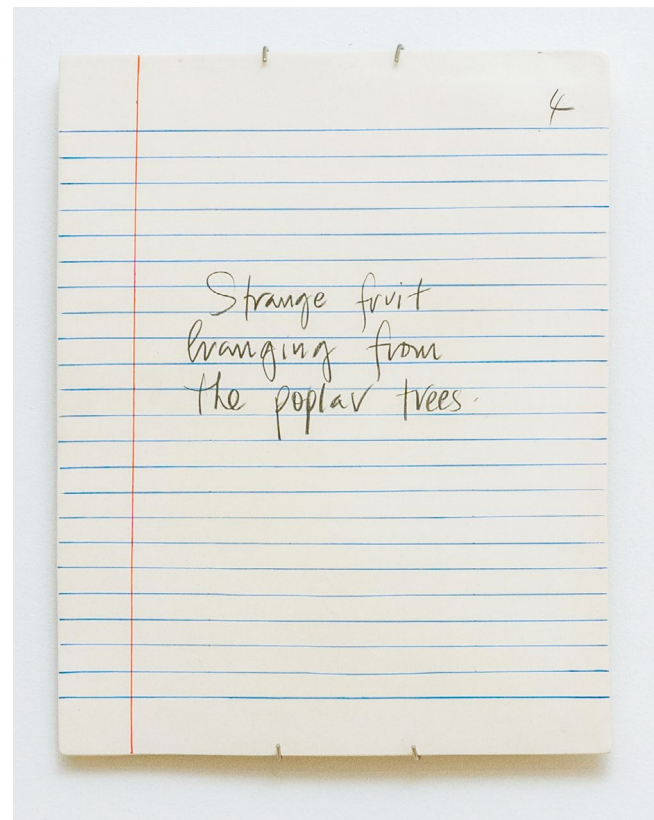 4
Strange fruit
hanging from
the poplar trees.